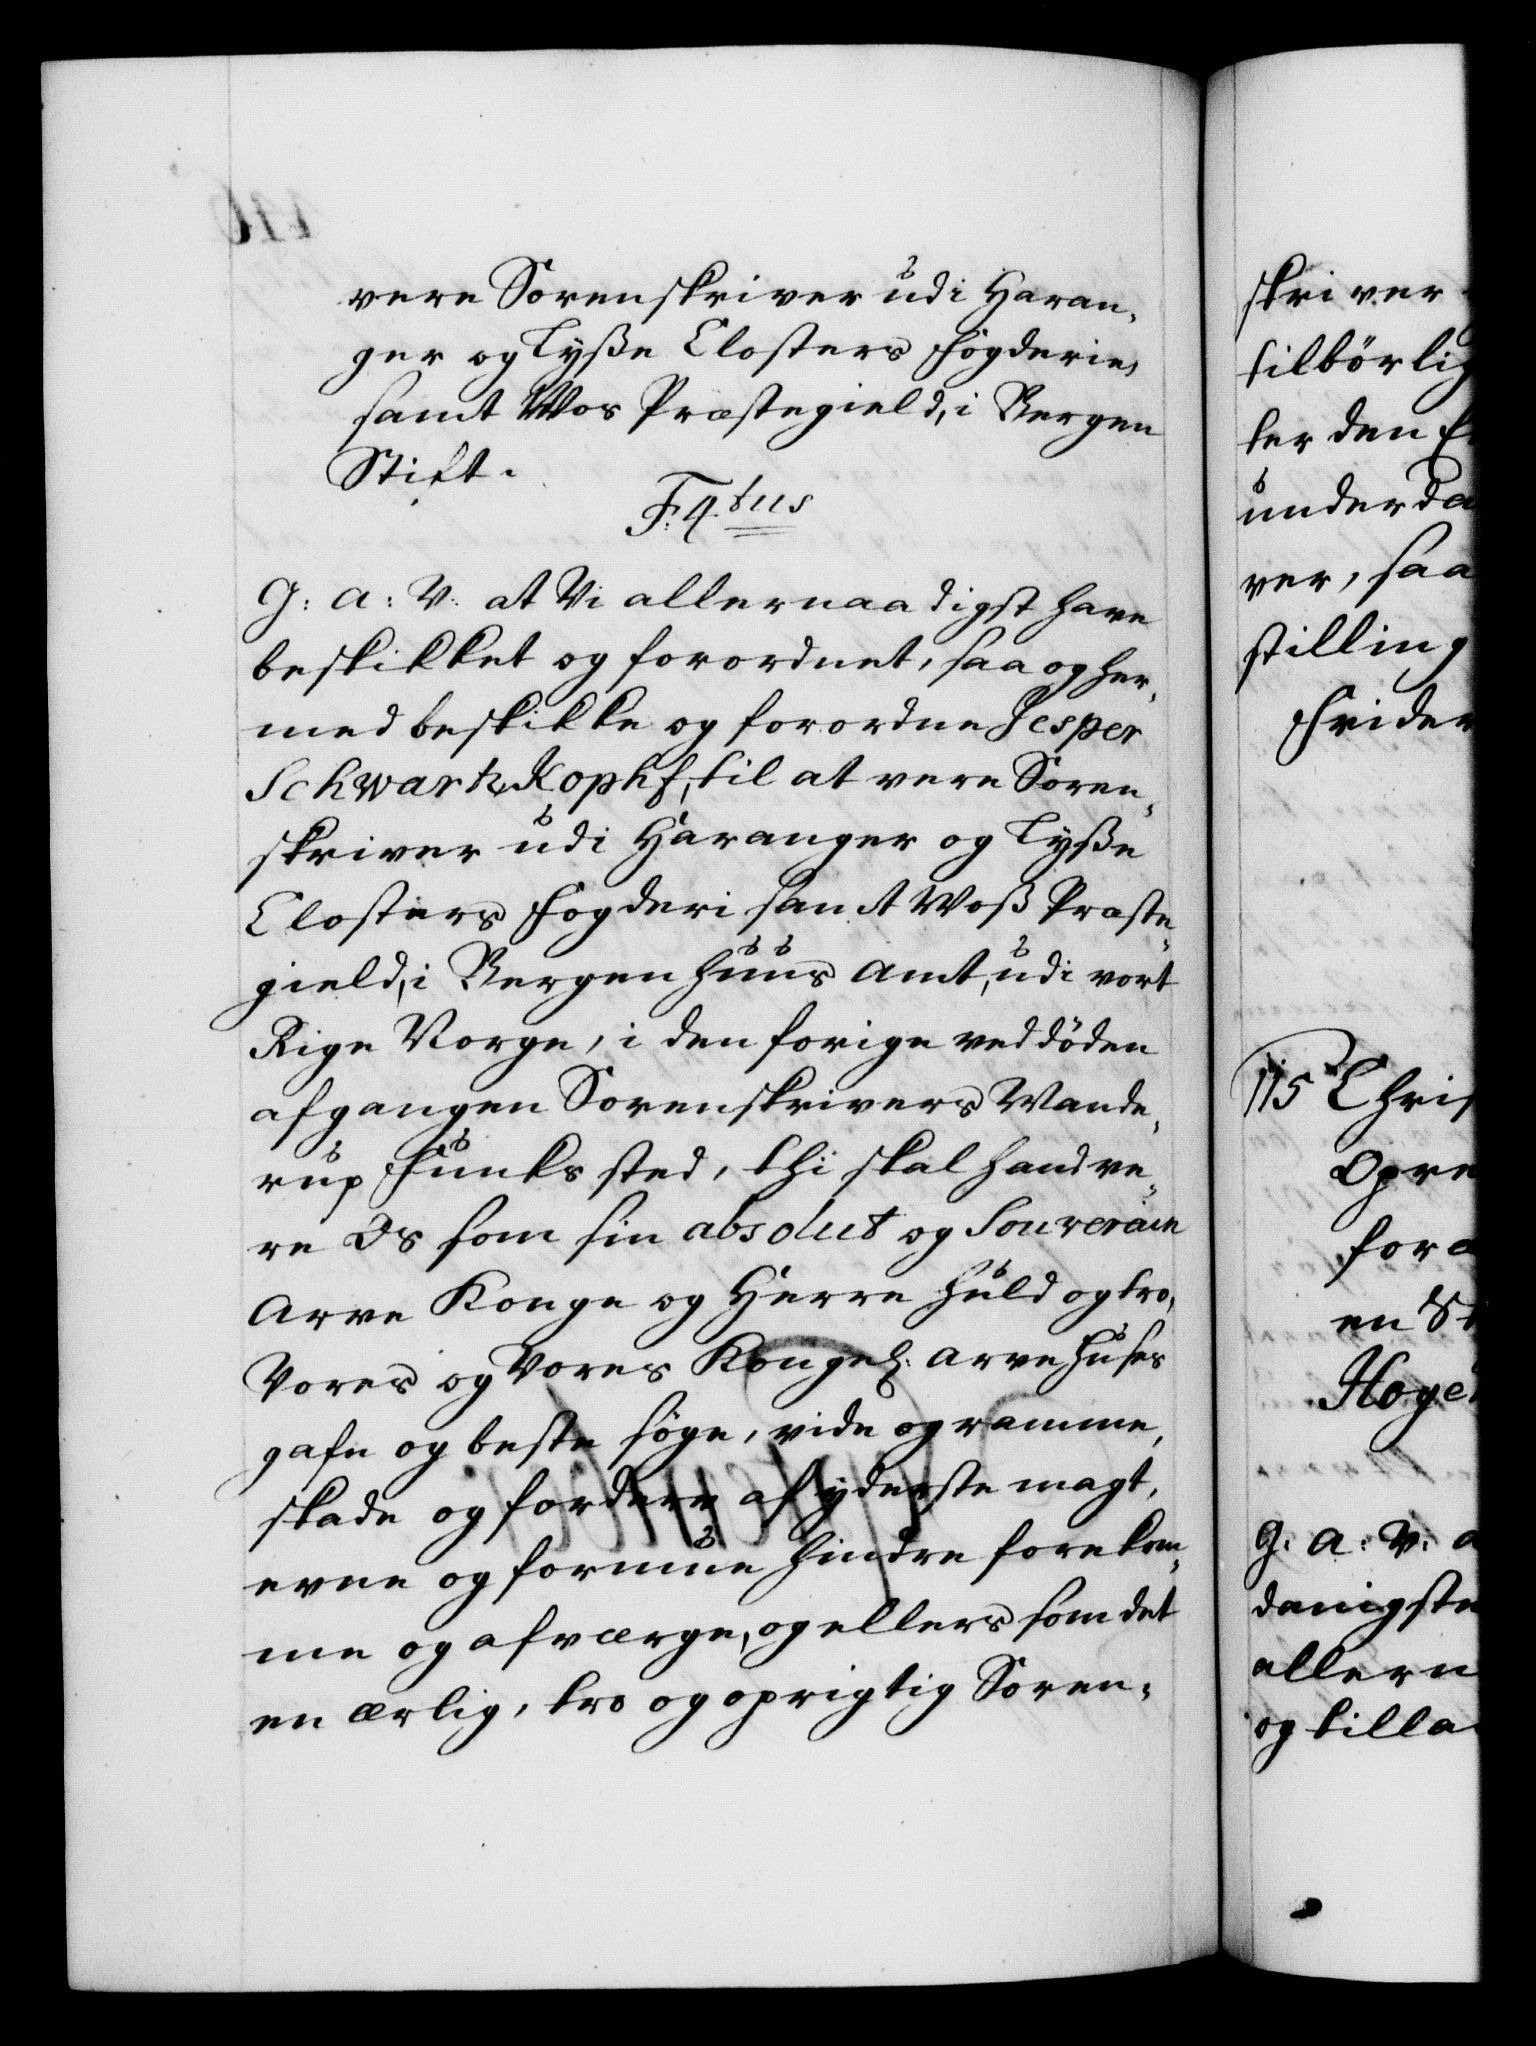 vere Sorenskriver udi Haran¬
ger og Lysse Closters Fögderie,
samt Wos Præstegield, i Bergen
Stift.
F: 4.tus
G: A: V: at Vi allernaadigst have
beskikket og forordnet, saa og her¬
med beskikke og forordne Jesper
Schwartz Kopff, til at vere Soren¬
skriver udi Haranger og Lysse
Closters Fogderi samt Woss Præste¬
gield, i Bergenhuus Amt, udi vort
Rige Norge, i den forige ved döden
afgangen Sorenskrivers Wande¬
rup Funks sted, thi skal hand ve¬
re Os som sin absolut og Souverain
Arve Konge og Herre huld og tro,
Vores og Vores Kongel: Arve Huses
gafn og beste söge, vide og ramme,
skade og forderv af yderste magt,
evne og formue hindre forekom¬
me og afværge, og ellers som det
en ærlig, tro og oprigtig Soren¬
skriver
tilbörlig
ter den
underda
ver, saa
stilling
Frider
115 Chris
opre
for
en
Hoye
G: A: V: a
danigste
allern
og tilla